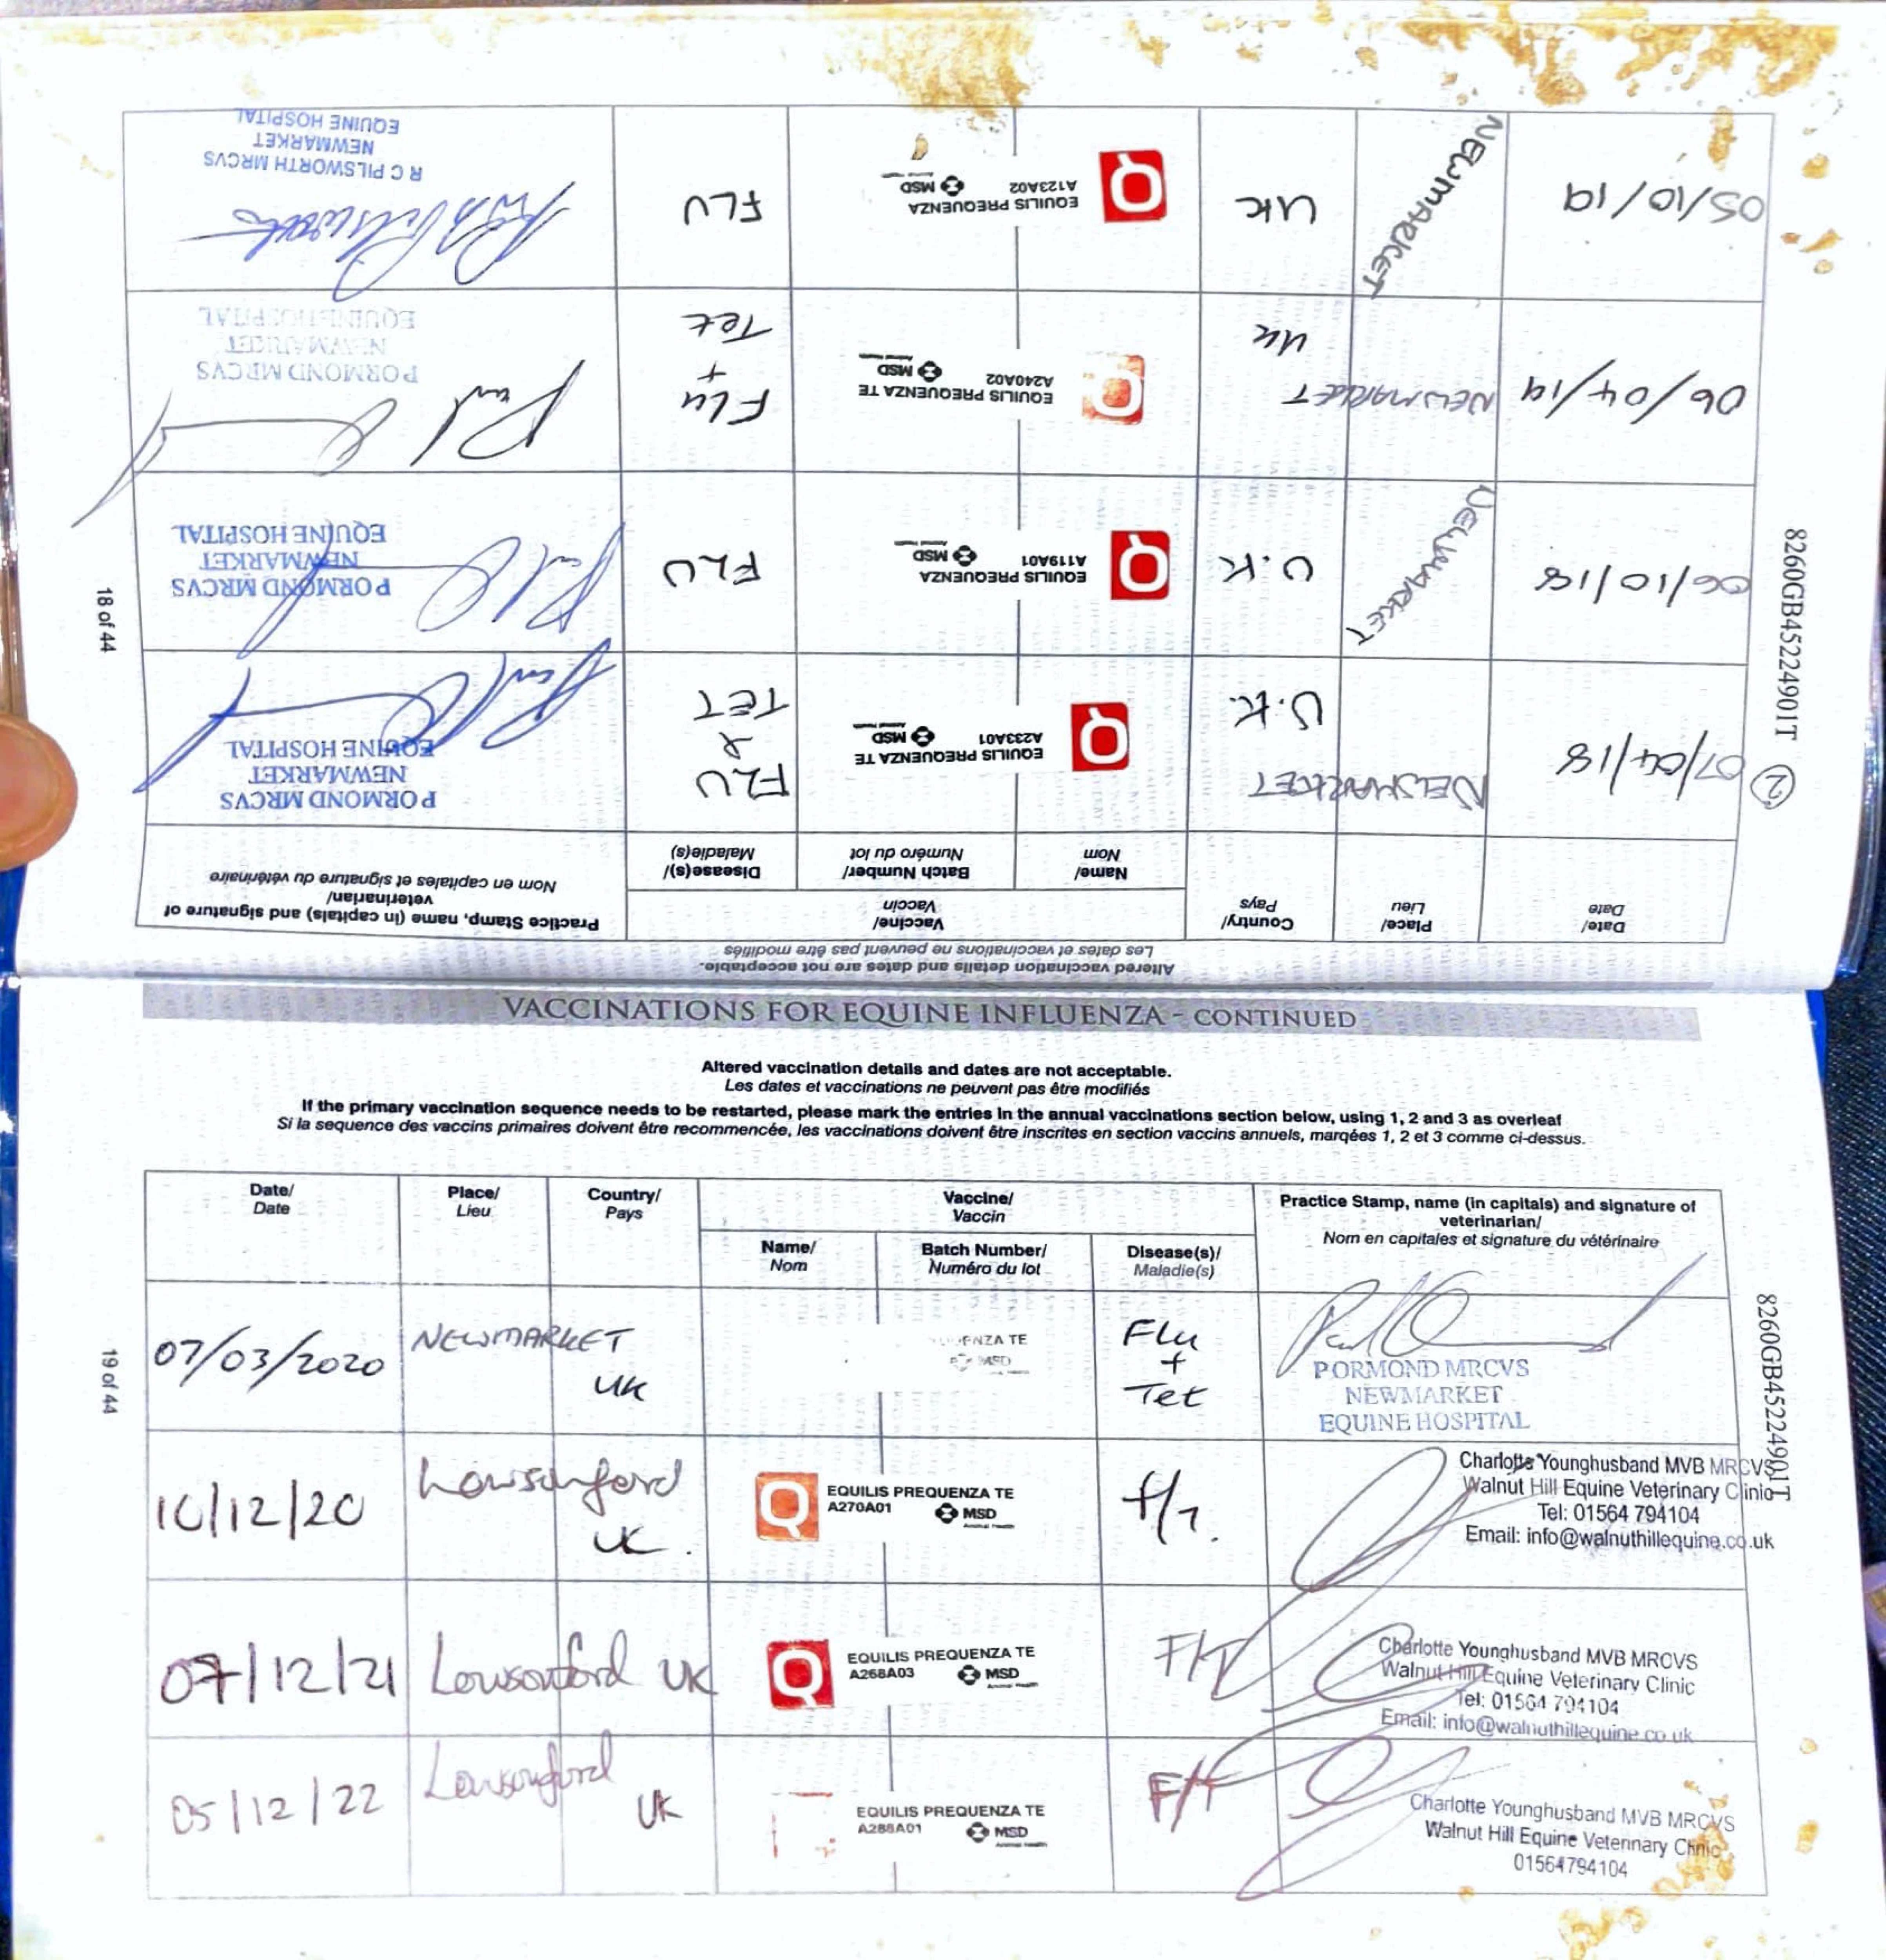 Altered vaccination details and dates are not acceptable.
Les dates et vaccinations ne peuvent pas être modifiés
Date/ Date
Place/ Lieu
Country/ Pays
Vaccine/ Vaccin
Name/ Nom
Batch Number/ Numéro du lot
Disease(s)/ Maladie(s)
Practice Stamp, name (in capitals) and signature of
veterinarian/
Nom en capitales et signature du vétérinaire
07/04/18
NEWMARKET
U.K.
EQUILIS PREQUENZA TE
A233A01 MSD
Animal Health
FLU
&
TET
PORMOND MRCVS
NEWMARKET
EQUINE HOSPITAL
06/10/18
NEWMARKET
U.K
EQUILIS PREQUENZA
A119A01 MSD
Animal Health
FLU
PORMOND MRCVS
NEWMARKET
EQUINE HOSPITAL
06/04/19
NEWMARKET
UK
EQUILIS PREQUENZA TE
A240A02 MSD
Animal Health
Flu
+
Tet
PORMOND MRCVS
NEWMARKET
EQUINE HOSPITAL
05/10/19
NEWMARKET
UK
EQUILIS PREQUENZA
A123A02 MSD
Animal Health
FLU
R C PILSWORTH MRCVS
NEWMARKET
EQUINE HOSPITAL
18 of 44
8260GB45224901T
2
VACCINATIONS FOR EQUINE INFLUENZA - CONTINUED
Altered vaccination details and dates are not acceptable.
Les dates et vaccinations ne peuvent pas être modifiés
If the primary vaccination sequence needs to be restarted, please mark the entries in the annual vaccinations section below, using 1, 2 and 3 as overleaf
Si la sequence des vaccins primaires doivent être recommencée, les vaccinations doivent être inscrites en section vaccins annuels, marqées 1, 2 et 3 comme ci-dessus.
Date/ Date
Place/ Lieu
Country/ Pays
Vaccine/ Vaccin
Name/ Nom
Batch Number/ Numéro du lot
Disease(s)/ Maladie(s)
Practice Stamp, name (in capitals) and signature of
veterinarian/
Nom en capitales et signature du vétérinaire
07/03/2020
NEWMARKET
UK
TE
MSD
Flu
+
Tet
PORMOND MRCVS
NEWMARKET
EQUINE HOSPITAL
/12/20
Lowsonford
UK.
EQUILIS PREQUENZA TE
A270A01 MSD
Animal Health
f/T.
Charlotte Younghusband MVB MRCVS
Walnut Hill Equine Veterinary Clinic
Tel: 01564 794104
Email: info@walnuthillequine.co.uk
07/12/21
Lowsonford UK
EQUILIS PREQUENZA TE
A268A03 MSD
Animal Health
F/T
Charlotte Younghusband MVB MRCVS
Walnut Hill Equine Veterinary Clinic
Tel: 01564 794104
Email: info@walnuthillequine.co.uk
05/12/22
Lowsonford
UK
EQUILIS PREQUENZA TE
A288A01 MSD
Animal Health
F/T
Charlotte Younghusband MVB MRCVS
Walnut Hill Equine Veterinary Clinic
01564794104
19 of 44
8260GB45224901T